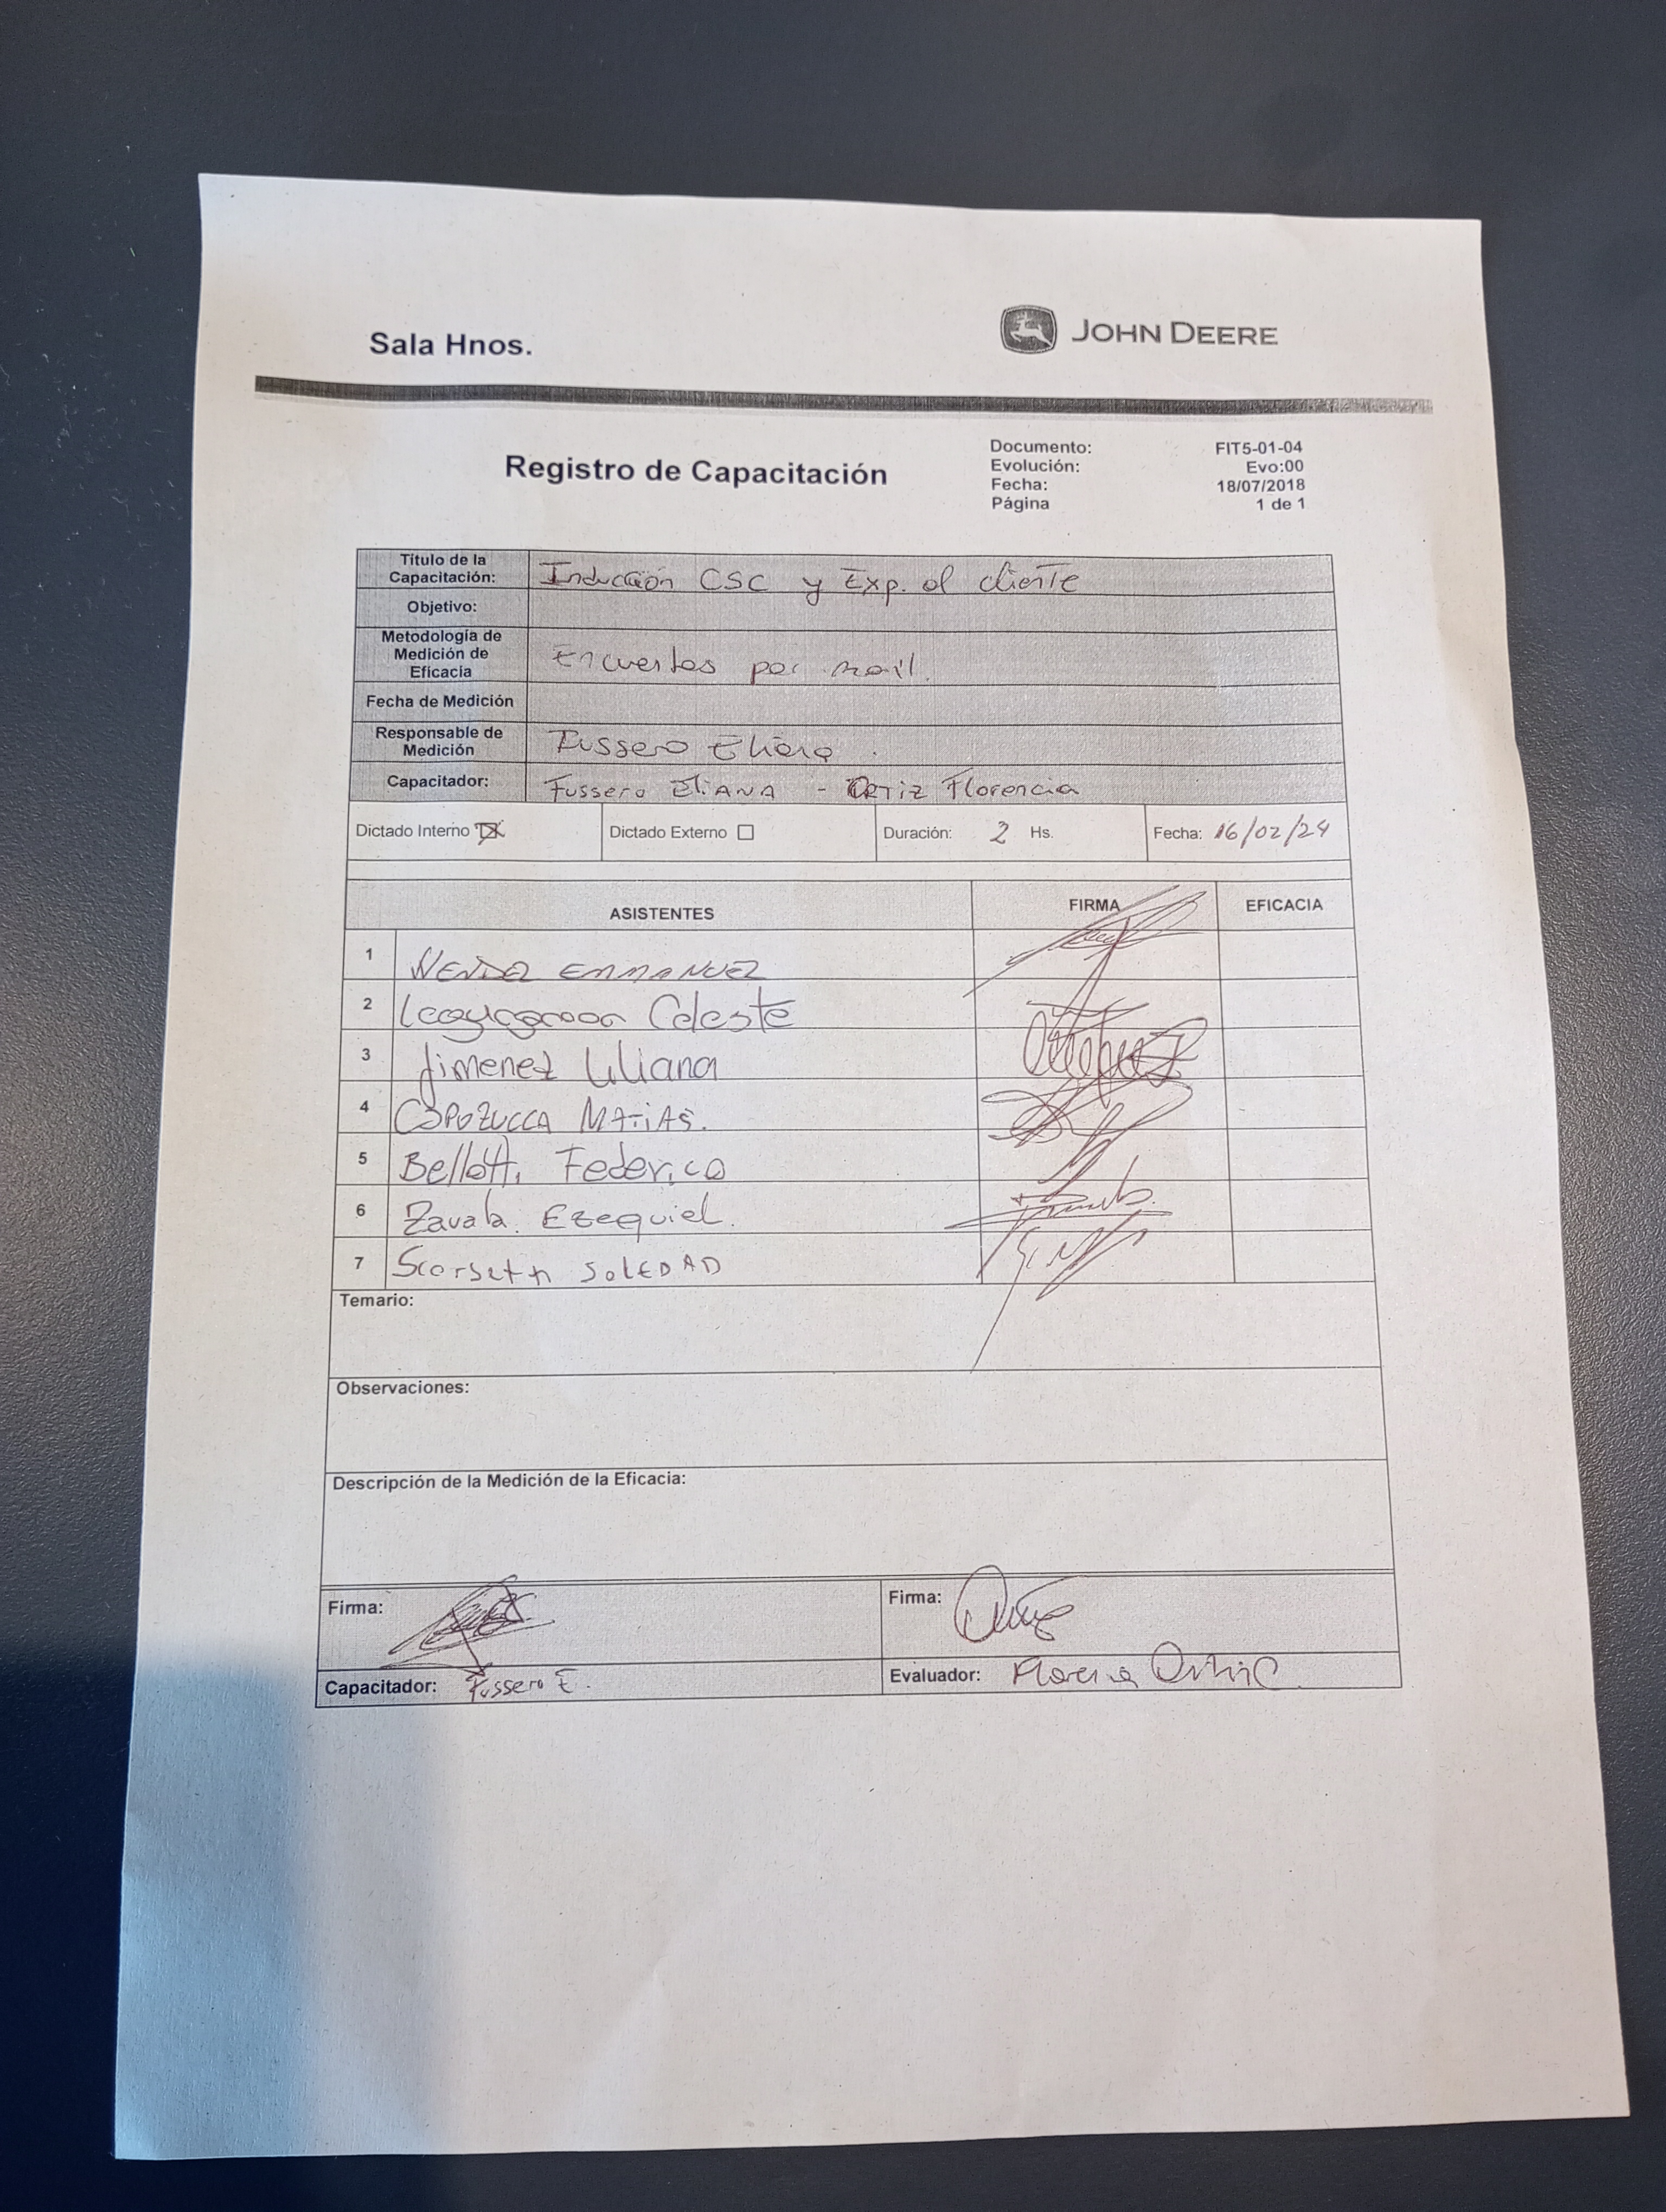 Sala Hnos.
JOHN DEERE
Registro de Capacitación
Documento: FIT5-01-04
Evolución: Evo:00
Fecha: 18/07/2018
Página 1 de 1
Título de la Capacitación: Inducción CSC y Exp. al cliente
Objetivo:
Metodología de Medición de Eficacia Encuestas por mail.
Fecha de Medición
Responsable de Medición Fussero Eliana.
Capacitador: Fussero ELIANA - ORTIZ Florencia
Dictado Interno Dictado Externo Duración: 2 Hs. Fecha: 16/02/24
ASISTENTES FIRMA EFICACIA
1 EMMANUEL
2 Celeste
3 Jimenez Liliana
4 CAPOZUCCA MATIAS.
5 Bellotti Federico
6 Zavala Ezequiel.
7 SOLEDAD
Temario:
Observaciones:
Descripción de la Medición de la Eficacia:
Firma: Firma:
Capacitador: Fussero E. Evaluador: Florencia